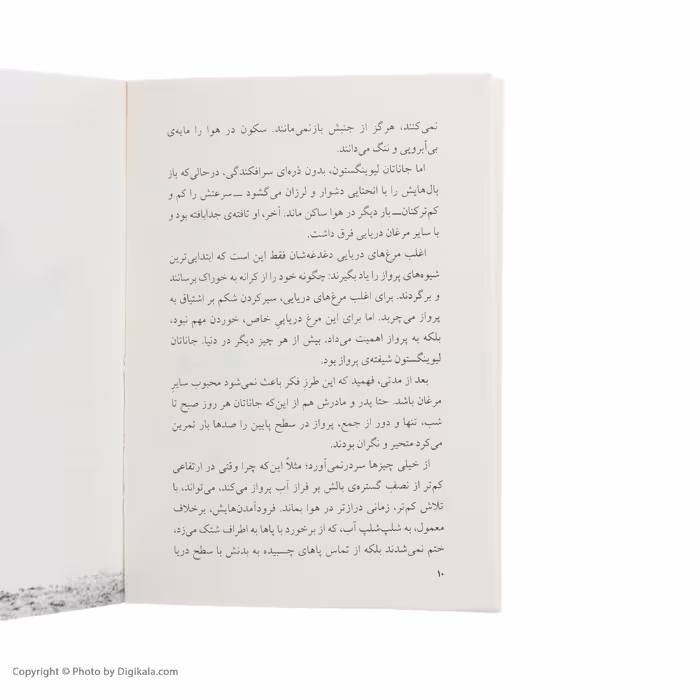 نمی‌کنند، هرگز از جنبش بازنمی‌مانند. سکون در هوا را مایه‌ی
بی‌آبرویی و ننگ می‌دانند.
اما جاناتان لیوینگستون، بدون ذره‌ای سرافکندگی، درحالی‌که باز
بال‌هایش را با انحنایی دشوار و لرزان می‌گشود ــ سرعتش را کم و
کم‌ترکنان ــ بار دیگر در هوا ساکن ماند. آخر، او تافته‌ی جدابافته بود و
با سایر مرغان دریایی فرق داشت.
اغلب مرغ‌های دریایی دغدغه‌شان فقط این است که ابتدایی‌ترین
شیوه‌های پرواز را یاد بگیرند: چگونه خود را از کرانه به خوراک برسانند
و برگردند. برای اغلب مرغ‌های دریایی، سیرکردن شکم بر اشتیاق به
پرواز می‌چربد. اما برای این مرغ دریاییِ خاص، خوردن مهم نبود،
بلکه به پرواز اهمیت می‌داد. بیش از هر چیز دیگر در دنیا. جاناتان
لیوینگستون شیفته‌ی پرواز بود.
بعد از مدتی، فهمید که این طرزِ فکر باعث نمی‌شود محبوب سایرِ
مرغان باشد. حتا پدر و مادرش هم از این‌که جاناتان هر روز صبح تا
شب، تنها و دور از جمع، پرواز در سطح پایین را صدها بار تمرین
می‌کرد متحیر و نگران بودند.
از خیلی چیزها سردرنمی‌آورد؛ مثلاً این‌که چرا وقتی در ارتفاعی
کم‌تر از نصفِ گستره‌ی بالش بر فراز آب پرواز می‌کند، می‌تواند، با
تلاش کم‌تر، زمانی درازتر در هوا بماند. فرودآمدن‌هایش، برخلاف
معمول، به شلپ‌شلپِ آب، که از برخورد با پاها به اطراف شتک می‌زد،
ختم نمی‌شدند بلکه از تماس پاهای چسبیده به بدنش با سطح دریا
۱۰
Copyright © Photo by Digikala.com